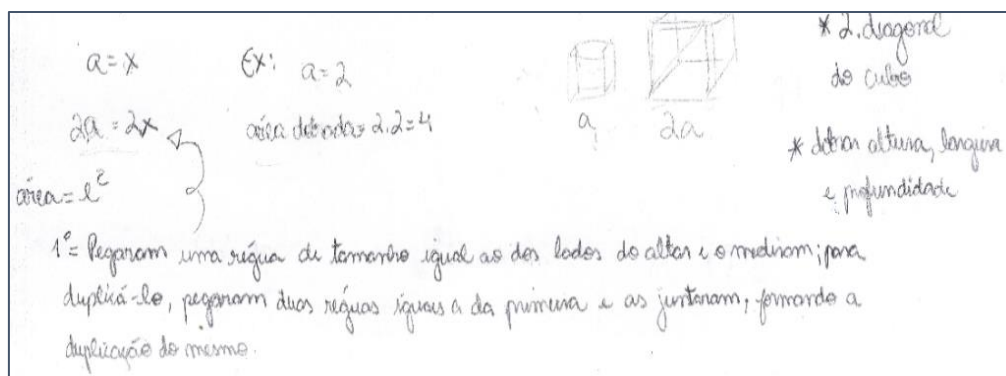 a = x
Ex: a = 2
* 2. diagonal
do cubo
2a = 2x
área dobrada = 2.2 = 4
a
2a
* dobrar altura, largura
e profundidade
área = l²
1º = Pegaram uma régua de tamanho igual ao dos lados do altar e o mediram; para
duplicá-lo, pegaram duas réguas iguais a da primeira e as juntaram, formando a
duplicação do mesmo.